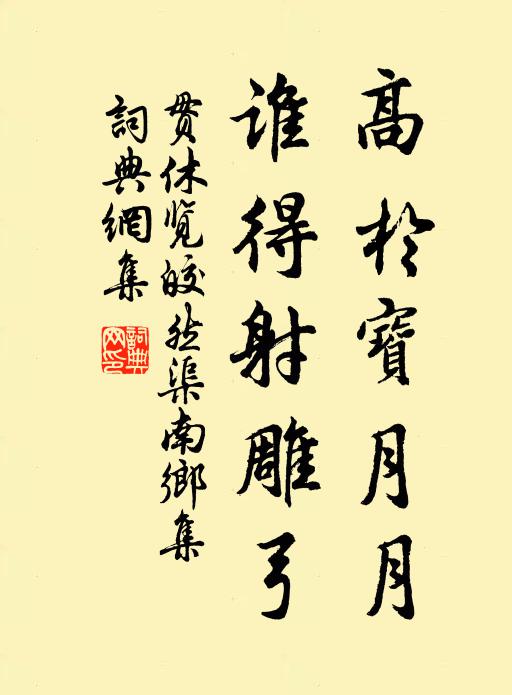 高於寶月月
谁得射雕弓
贯休览皎然渠南鄉集
詞典網集
詞典網印